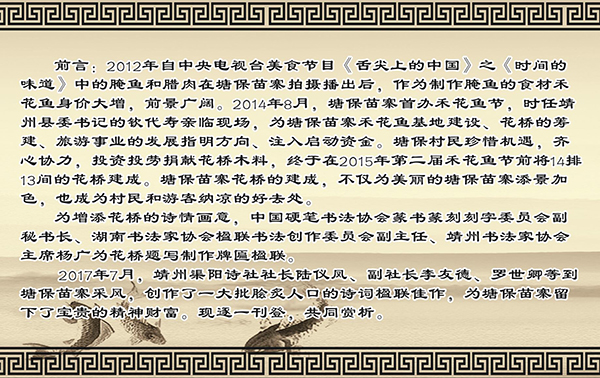 前言：2012年自中央电视台美食节目《舌尖上的中国》之《时间的
味道》中的腌鱼和腊肉在塘保苗寨拍摄播出后，作为制作腌鱼的食材禾
花鱼身价大增，前景广阔。2014年8月，塘保苗寨首办禾花鱼节，时任靖
州县委书记的钦代寿亲临现场，为塘保苗寨禾花鱼基地建设、花桥的筹
建、旅游事业的发展指明方向、注入启动资金。塘保村民珍惜机遇，齐
心协力，投资投劳捐献花桥木料，终于在2015年第二届禾花鱼节前将14排
13间的花桥建成。塘保苗寨花桥的建成，不仅为美丽的塘保苗寨添景加
色，也成为村民和游客纳凉的好去处。
为增添花桥的诗情画意，中国硬笔书法协会篆书篆刻刻字委员会副
秘书长、湖南书法家协会楹联书法创作委员会副主任、靖州书法家协会
主席杨广为花桥题写制作牌匾楹联。
2017年7月，靖州渠阳诗社社长陆仪风、副社长李友德、罗世卿等到
塘保苗寨采风，创作了一大批脍炙人口的诗词楹联佳作，为塘保苗寨留
下了宝贵的精神财富。现逐一刊登，共同赏析。